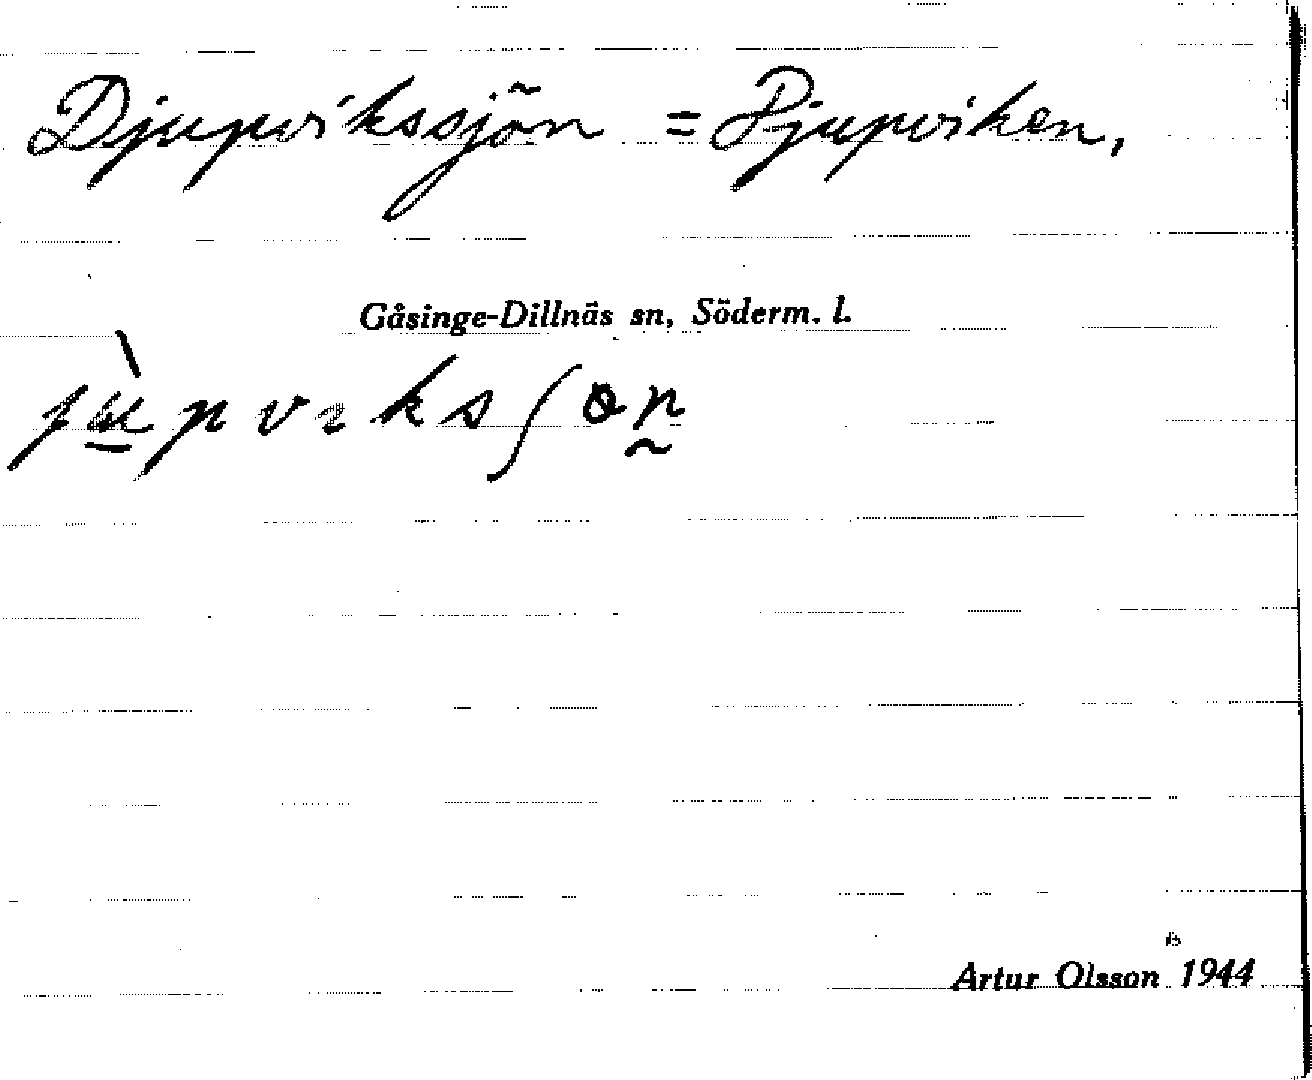 Djupvikssjön = Djupviken,
Gåsinge-Dillnäs sn, Söderm. l.
Artur Olsson 1944